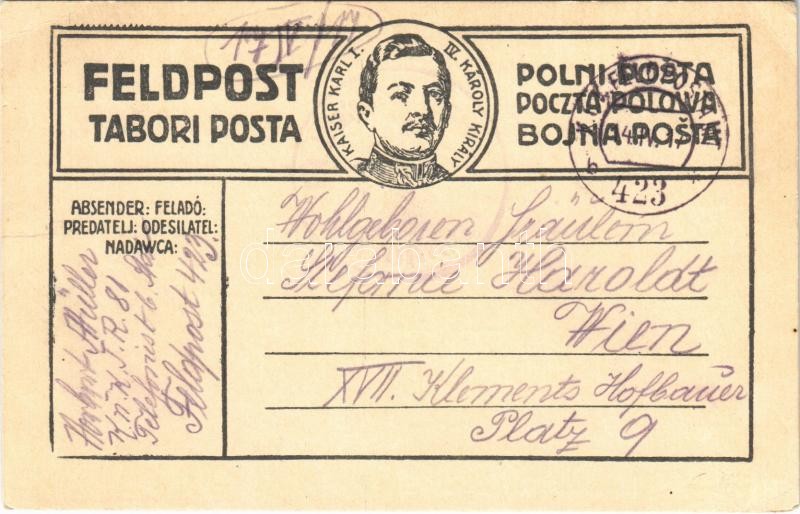 17/IV/17
FELDPOST
TABORI POSTA
KAISER KARL I.
IV. KÁROLY KIRÁLY
POLNI POSTA
POCZTA POLOWA
BOJNA POŠTA
423
ABSENDER: FELADÓ:
PREDATELJ: ODESILATEL:
NADAWCA:
Müller
I. R. 81
Telefonist
Feldpost 423.
Wohlgeboren Fräulein
Stefanie Haroldt
Wien
XVII. Klements Hofbauer
Platz 9
darabanth